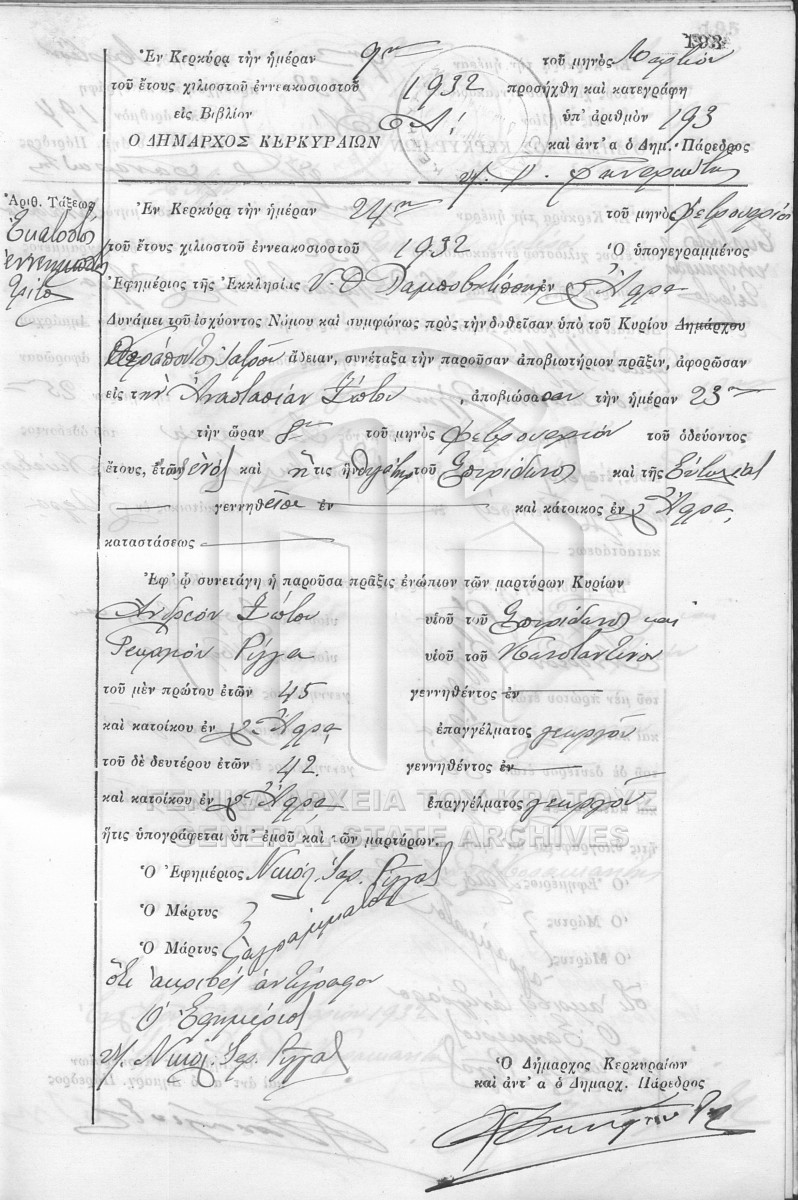 193
Ἐν Κερκύρᾳ τὴν ἡμέραν 9ην τοῦ μηνὸς Μαρτίου
τοῦ ἔτους χιλιοστοῦ ἐννεακοσιοστοῦ 1932 προσήχθη καὶ κατεγράφη
εἰς Βιβλίον Α! ὑπ' ἀριθμὸν 193
Ὁ ΔΗΜΑΡΧΟΣ ΚΕΡΚΥΡΑΙΩΝ καὶ ἀντ' α ὁ Δημ. Πάρεδρος
Ἀριθ. Τάξεως
Ἑκατοστὸς
ἐννενηκοστὸς
τρίτος
Ἐν Κερκύρᾳ τὴν ἡμέραν 24ην τοῦ μηνὸς Φεβρουαρίου
τοῦ ἔτους χιλιοστοῦ ἐννεακοσιοστοῦ 1932 Ὁ ὑπογεγραμμένος
Ἐφημέριος τῆς Ἐκκλησίας Υ. Θ. ἐν Ἄφρᾳ
Δυνάμει τοῦ ἰσχύοντος Νόμου καὶ συμφώνως πρὸς τὴν δοθεῖσαν ὑπὸ τοῦ Κυρίου Δημάρχου
Θεράποντος Ἰατροῦ ἄδειαν, συνέταξα τὴν παροῦσαν ἀποβιωτήριον πρᾶξιν, ἀφορῶσαν
εἰς τὴν Ἀναστασίαν Σώτου, ἀποβιώσασαν τὴν ἡμέραν 23ην
τὴν ὥραν 8ην τοῦ μηνὸς Φεβρουαρίου τοῦ ὁδεύοντος
ἔτους, ἐτῶν ἑνὸς καὶ ἥτις ἦν θυγάτηρ τοῦ Σπυρίδωνος καὶ τῆς Εὐτυχίας
γεννηθεῖσα ἐν καὶ κάτοικος ἐν Ἄφρᾳ
καταστάσεως
Ἐφ' ᾧ συνετάγη ἡ παροῦσα πρᾶξις ἐνώπιον τῶν μαρτύρων Κυρίων
Ἀνδρέου Σώτου υἱοῦ τοῦ Σπυρίδωνος καὶ
Ρίγγα υἱοῦ τοῦ Κωνσταντίνου
τοῦ μὲν πρώτου ἐτῶν 45 γεννηθέντος ἐν
καὶ κατοίκου ἐν Ἄφρᾳ ἐπαγγέλματος γεωργοῦ
τοῦ δὲ δευτέρου ἐτῶν 42 γεννηθέντος ἐν
καὶ κατοίκου ἐν Ἄφρᾳ ἐπαγγέλματος γεωργοῦ
ΓΕΝΙΚΑ ΑΡΧΕΙΑ ΤΟΥ ΚΡΑΤΟΥΣ
GENERAL STATE ARCHIVES
ἥτις ὑπογράφεται ὑπ' ἐμοῦ καὶ τῶν μαρτύρων.
Ὁ Ἐφημέριος Νικόλ. Ἱερ. Ρίγγας
Ὁ Μάρτυς
Ὁ Μάρτυς ἀγράμματοι
Ὅτι ἀκριβὲς ἀντίγραφον
Ὁ Ἐφημέριος
Νικόλ. Ἱερ. Ρίγγας
Ὁ Δήμαρχος Κερκυραίων
καὶ ἀντ' α ὁ Δημαρχ. Πάρεδρος